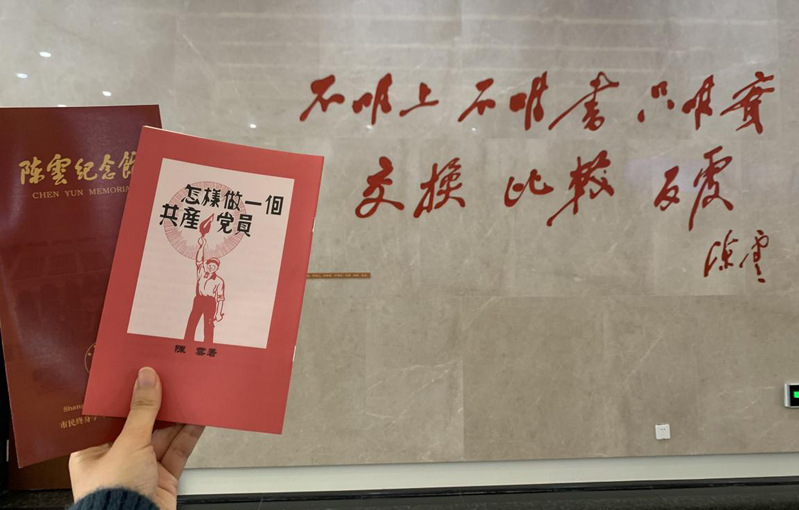 陈雲纪念馆
CHEN YUN MEMORIA
Shan
市民终身
怎樣做一個
共産党員
陳雲著
不唯上 不唯書 只唯實
交換 比較 反覆
陳雲